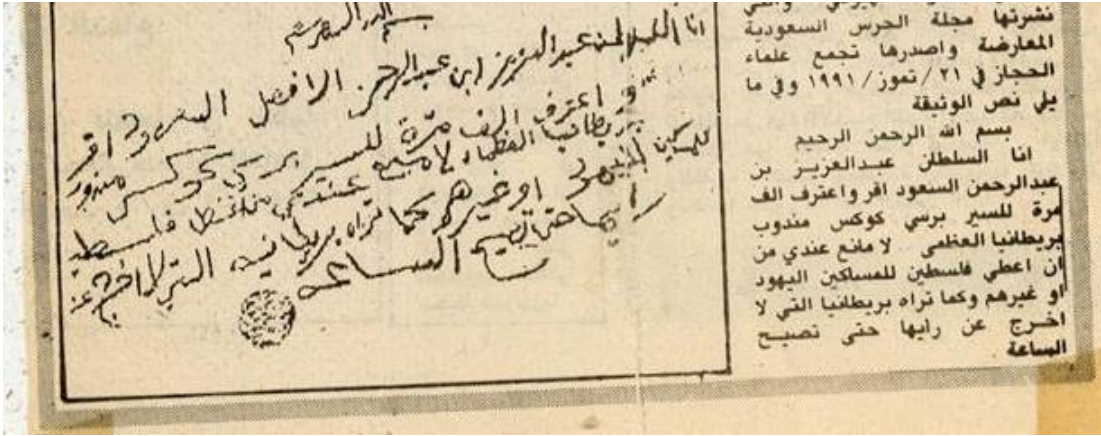 نشرتها مجلة الحرس السعودية
المعارضة واصدرها تجمع علماء
الحجاز في ٢١/تموز/١٩٩١ وفي ما
يلي نص الوثيقة
بسم الله الرحمن الرحيم
انا السلطان عبدالعزيز بن
عبدالرحمن السعود اقر واعترف الف
مرة للسير برسي كوكس مندوب
بريطانيا العظمى لا مانع عندي من
ان اعطي فلسطين للمساكين اليهود
او غيرهم وكما تراه بريطانيا التي لا
اخرج عن رايها حتى تصيح
الساعة
انا السلطان عبدالعزيز ابن عبدالرحمن الفيصل السعود اقر
و اعترف الف مرة للسير برسي كوكس مندوب
بريطانيا العظماء لا مانع عندي
او غيرهم كما تراه بريطانيه
حتى تصيح الساعه